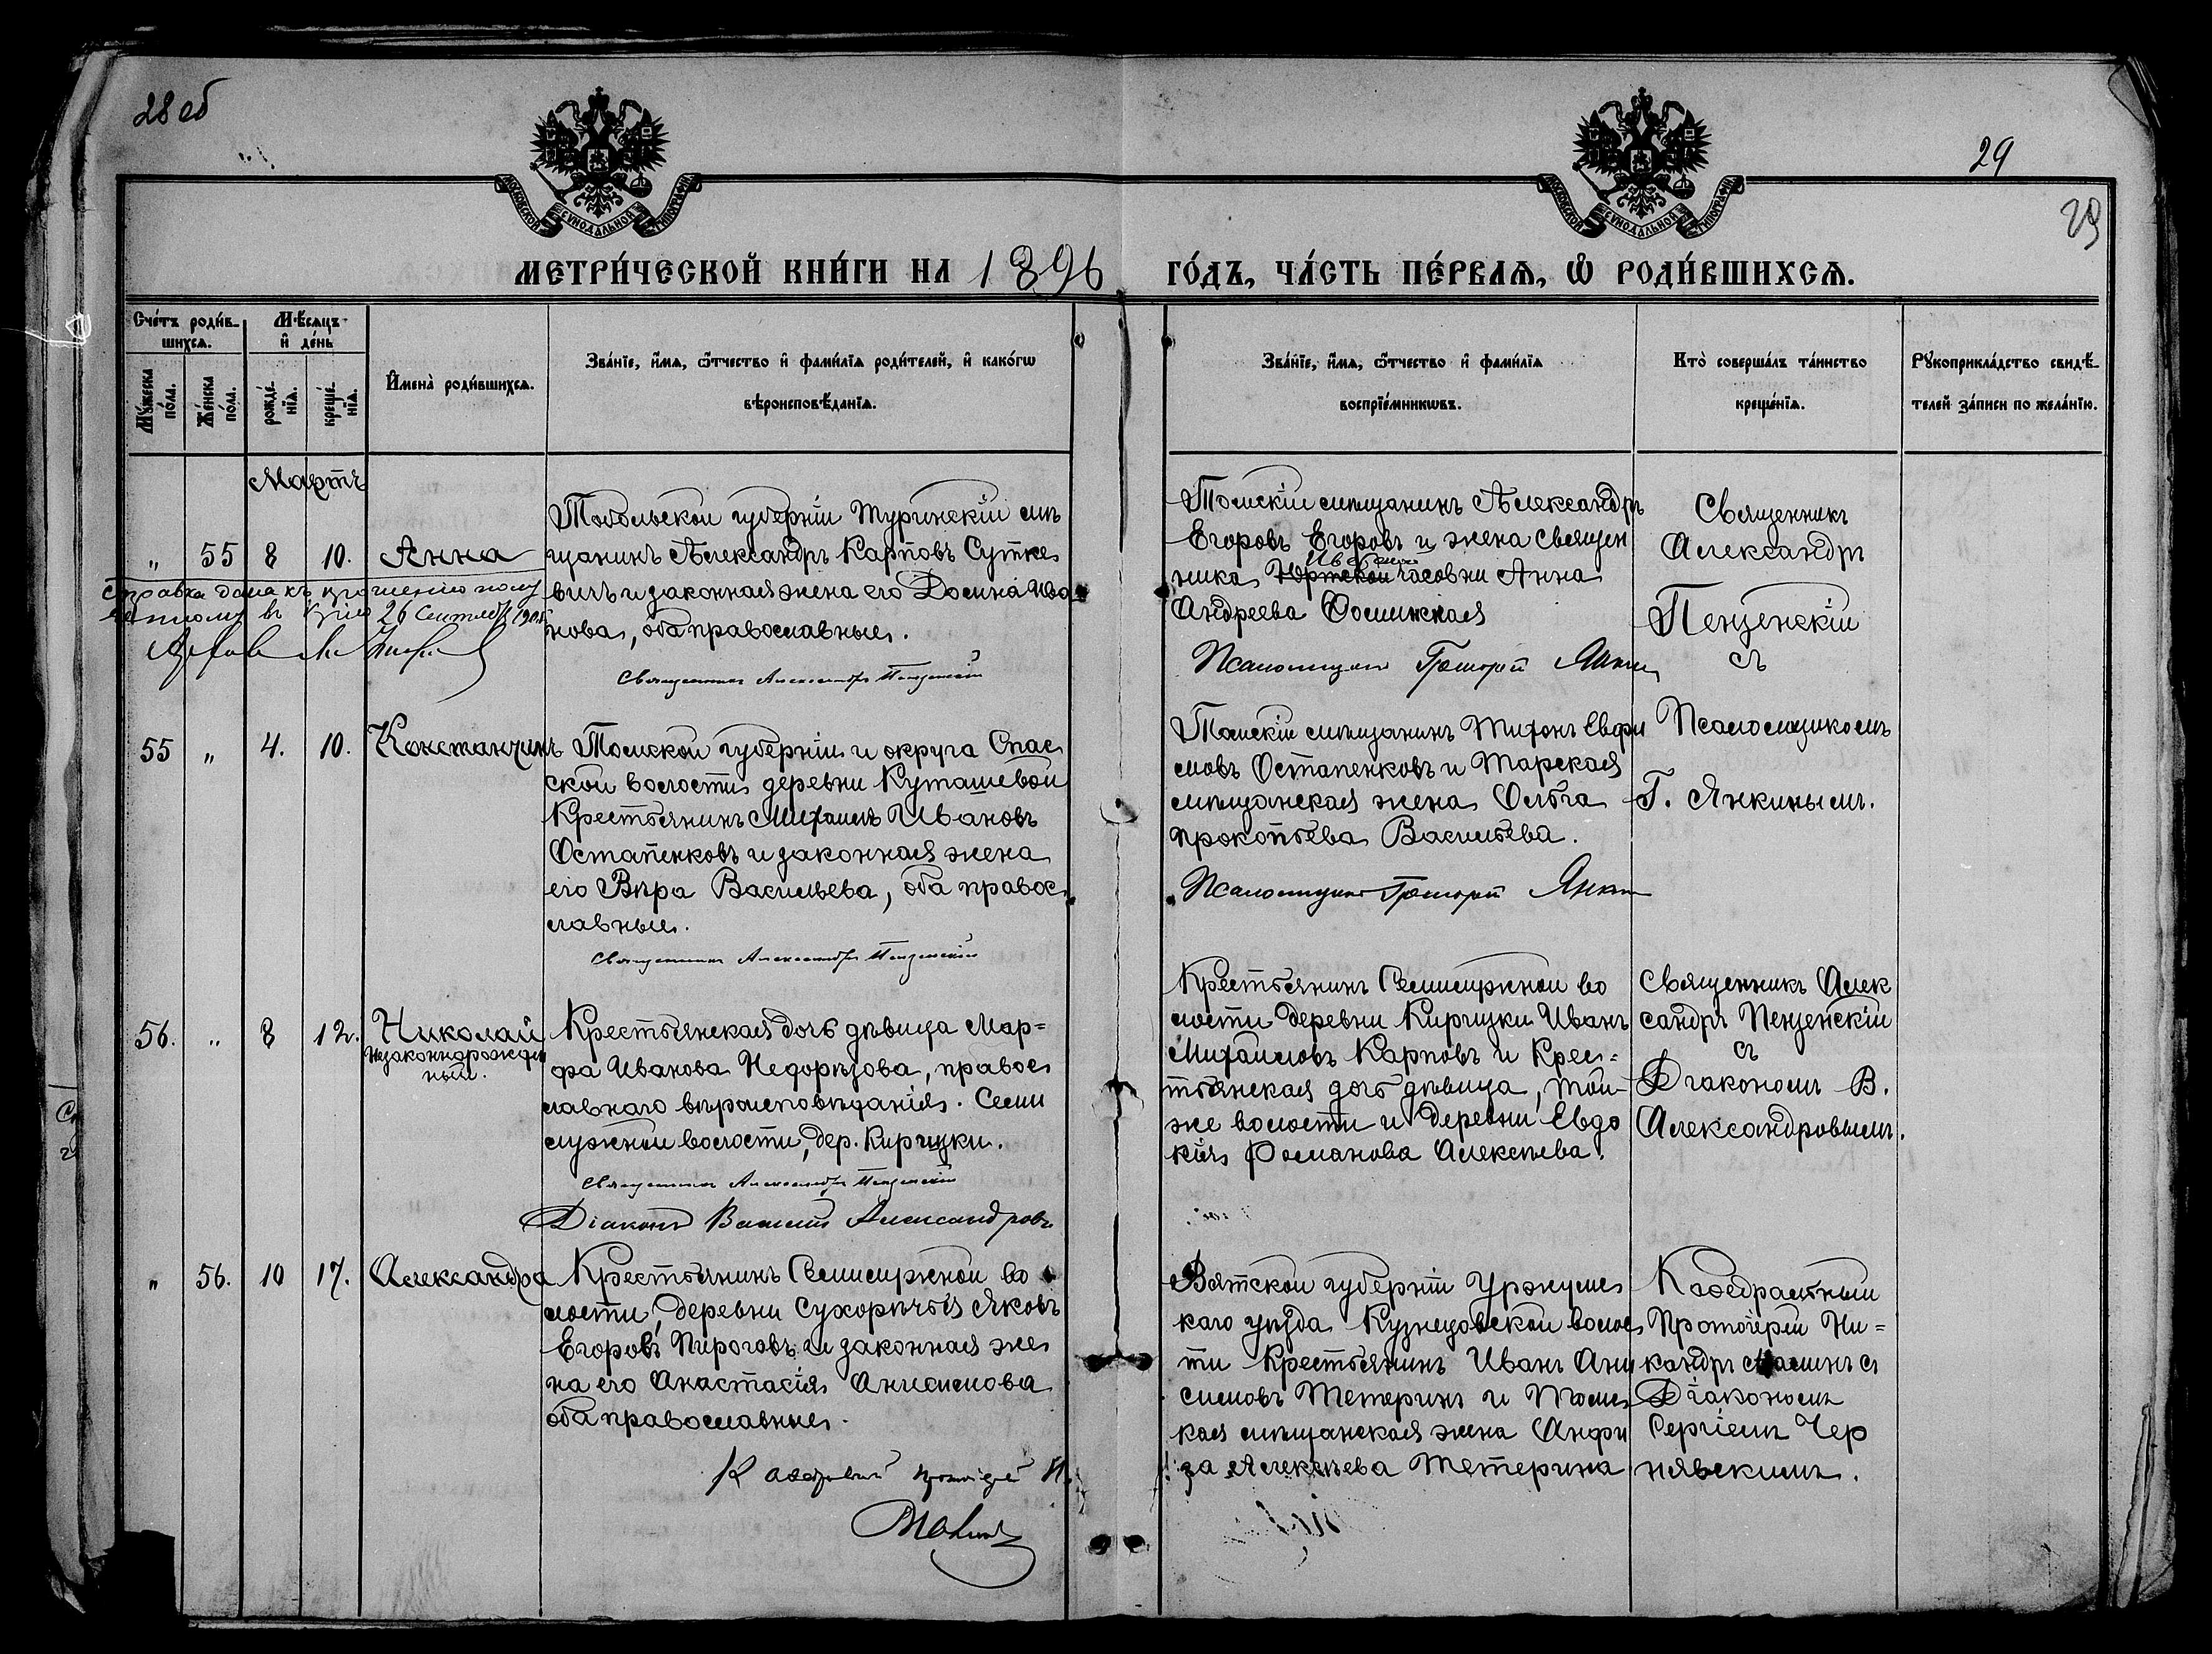 28 об
29
29
МОСКОВСКОЙ СѴНОДАЛЬНОЙ ТИПОГРАФІИ
МОСКОВСКОЙ СѴНОДАЛЬНОЙ ТИПОГРАФІИ
МЕТРИ́ЧЕСКОЙ КНИ́ГИ НА 1896 ГО́ДЪ, ЧА́СТЬ ПЕ́РВАѦ, Ѡ҆ РОДИ́ВШИХСѦ.
Сче́тъ роди́в-
шихсѧ.
Мꙋ́жеска
по́ла.
Же́нска
по́ла.
Мѣ́сѧцъ
и҆ де́нь
рожде́-
нїѧ.
креще́-
нїѧ.
И҆мена̀ роди́вшихсѧ.
Зва́нїе, и҆́мѧ, ѻ҆́тчество и҆ фами́лїѧ роди́телей, и҆ како́гѡ
вѣроисповѣ́данїѧ.
Зва́нїе, и҆́мѧ, ѻ҆́тчество и҆ фами́лїѧ
воспрїе́мникѡвъ.
Кто̀ соверша́лъ та́инство
креще́нїѧ.
Рꙋкоприкла́дство свидѣ́-
телей за́писи по жела́нїю.
Мартъ
„ 55 8 10. Анна
Тобольской губерніи Туринскій мѣ
щанинъ Александръ Карповъ Сутке
вичъ и законная жена его Домна Ива
нова, оба православные.
Священникъ Александръ Пензенскій
Справка дана къ прошенію
въ 26 Сентября
Томскій мѣщанинъ Александръ
Егоровъ Егоровъ и жена Священ
ника Юртской часовни Анна
Андреева Сосунская
Псаломщикъ Григорій Янкин
Священникъ
Александръ
Пензенскій
съ
Псаломщикомъ
Г. Янкинымъ.
55 „ 4. 10. Константинъ
Томской губерніи и округа Спас
ской волости деревни Куташевой
Крестьянинъ Михаилъ Ивановъ
Остапенковъ и законная жена
его Вѣра Васильева, оба правос
лавные.
Священникъ Александръ Пензенскій
Томскій мѣщанинъ Тихонъ Евфи
мовъ Остапенковъ и Тарская
мѣщанская жена Ольга
Прокопьева Васильева.
Псаломщикъ Григорій Янкин
56. „ 8 12. Николай
Незаконнорожден
ный.
Крестьянская дочь дѣвица Мар=
фа Иванова Недорѣзова, правос
лавнаго вѣроисповѣданія. Семи
лужной волости, дер. Киргизки.
Священникъ Александръ Пензенскій
Діаконъ Василій Александровъ
Крестьянинъ Семилужной во
лости деревни Киргизки Иванъ
Михаиловъ Карповъ и Крес=
тьянская дочь дѣвица, той
же волости и деревни Евдо
кія Романова Алексѣева.
Священникъ Алек
сандръ Пензенскій
съ
Діакономъ В.
Александровымъ.
„ 56. 10 17. Александра
Крестьянинъ Семилужной во
лости, деревни Сухорѣчья Яковъ
Егоровъ Пироговъ и законная же
на его Анастасія Анисимова
оба православные.
Каѳедральный протоіерей Н.
Малинъ
Вятской губерніи Уржумс
каго уѣзда Кузнецовской волос
ти Крестьянинъ Иванъ Ани
симовъ Тетеринъ и Томс
кая мѣщанская жена Анфи
за Алексѣева Тетерина
Каѳедральный
Протоіерей Ни=
кандръ Малинъ съ
Діакономъ
Сергіемъ Чер
нявскимъ.